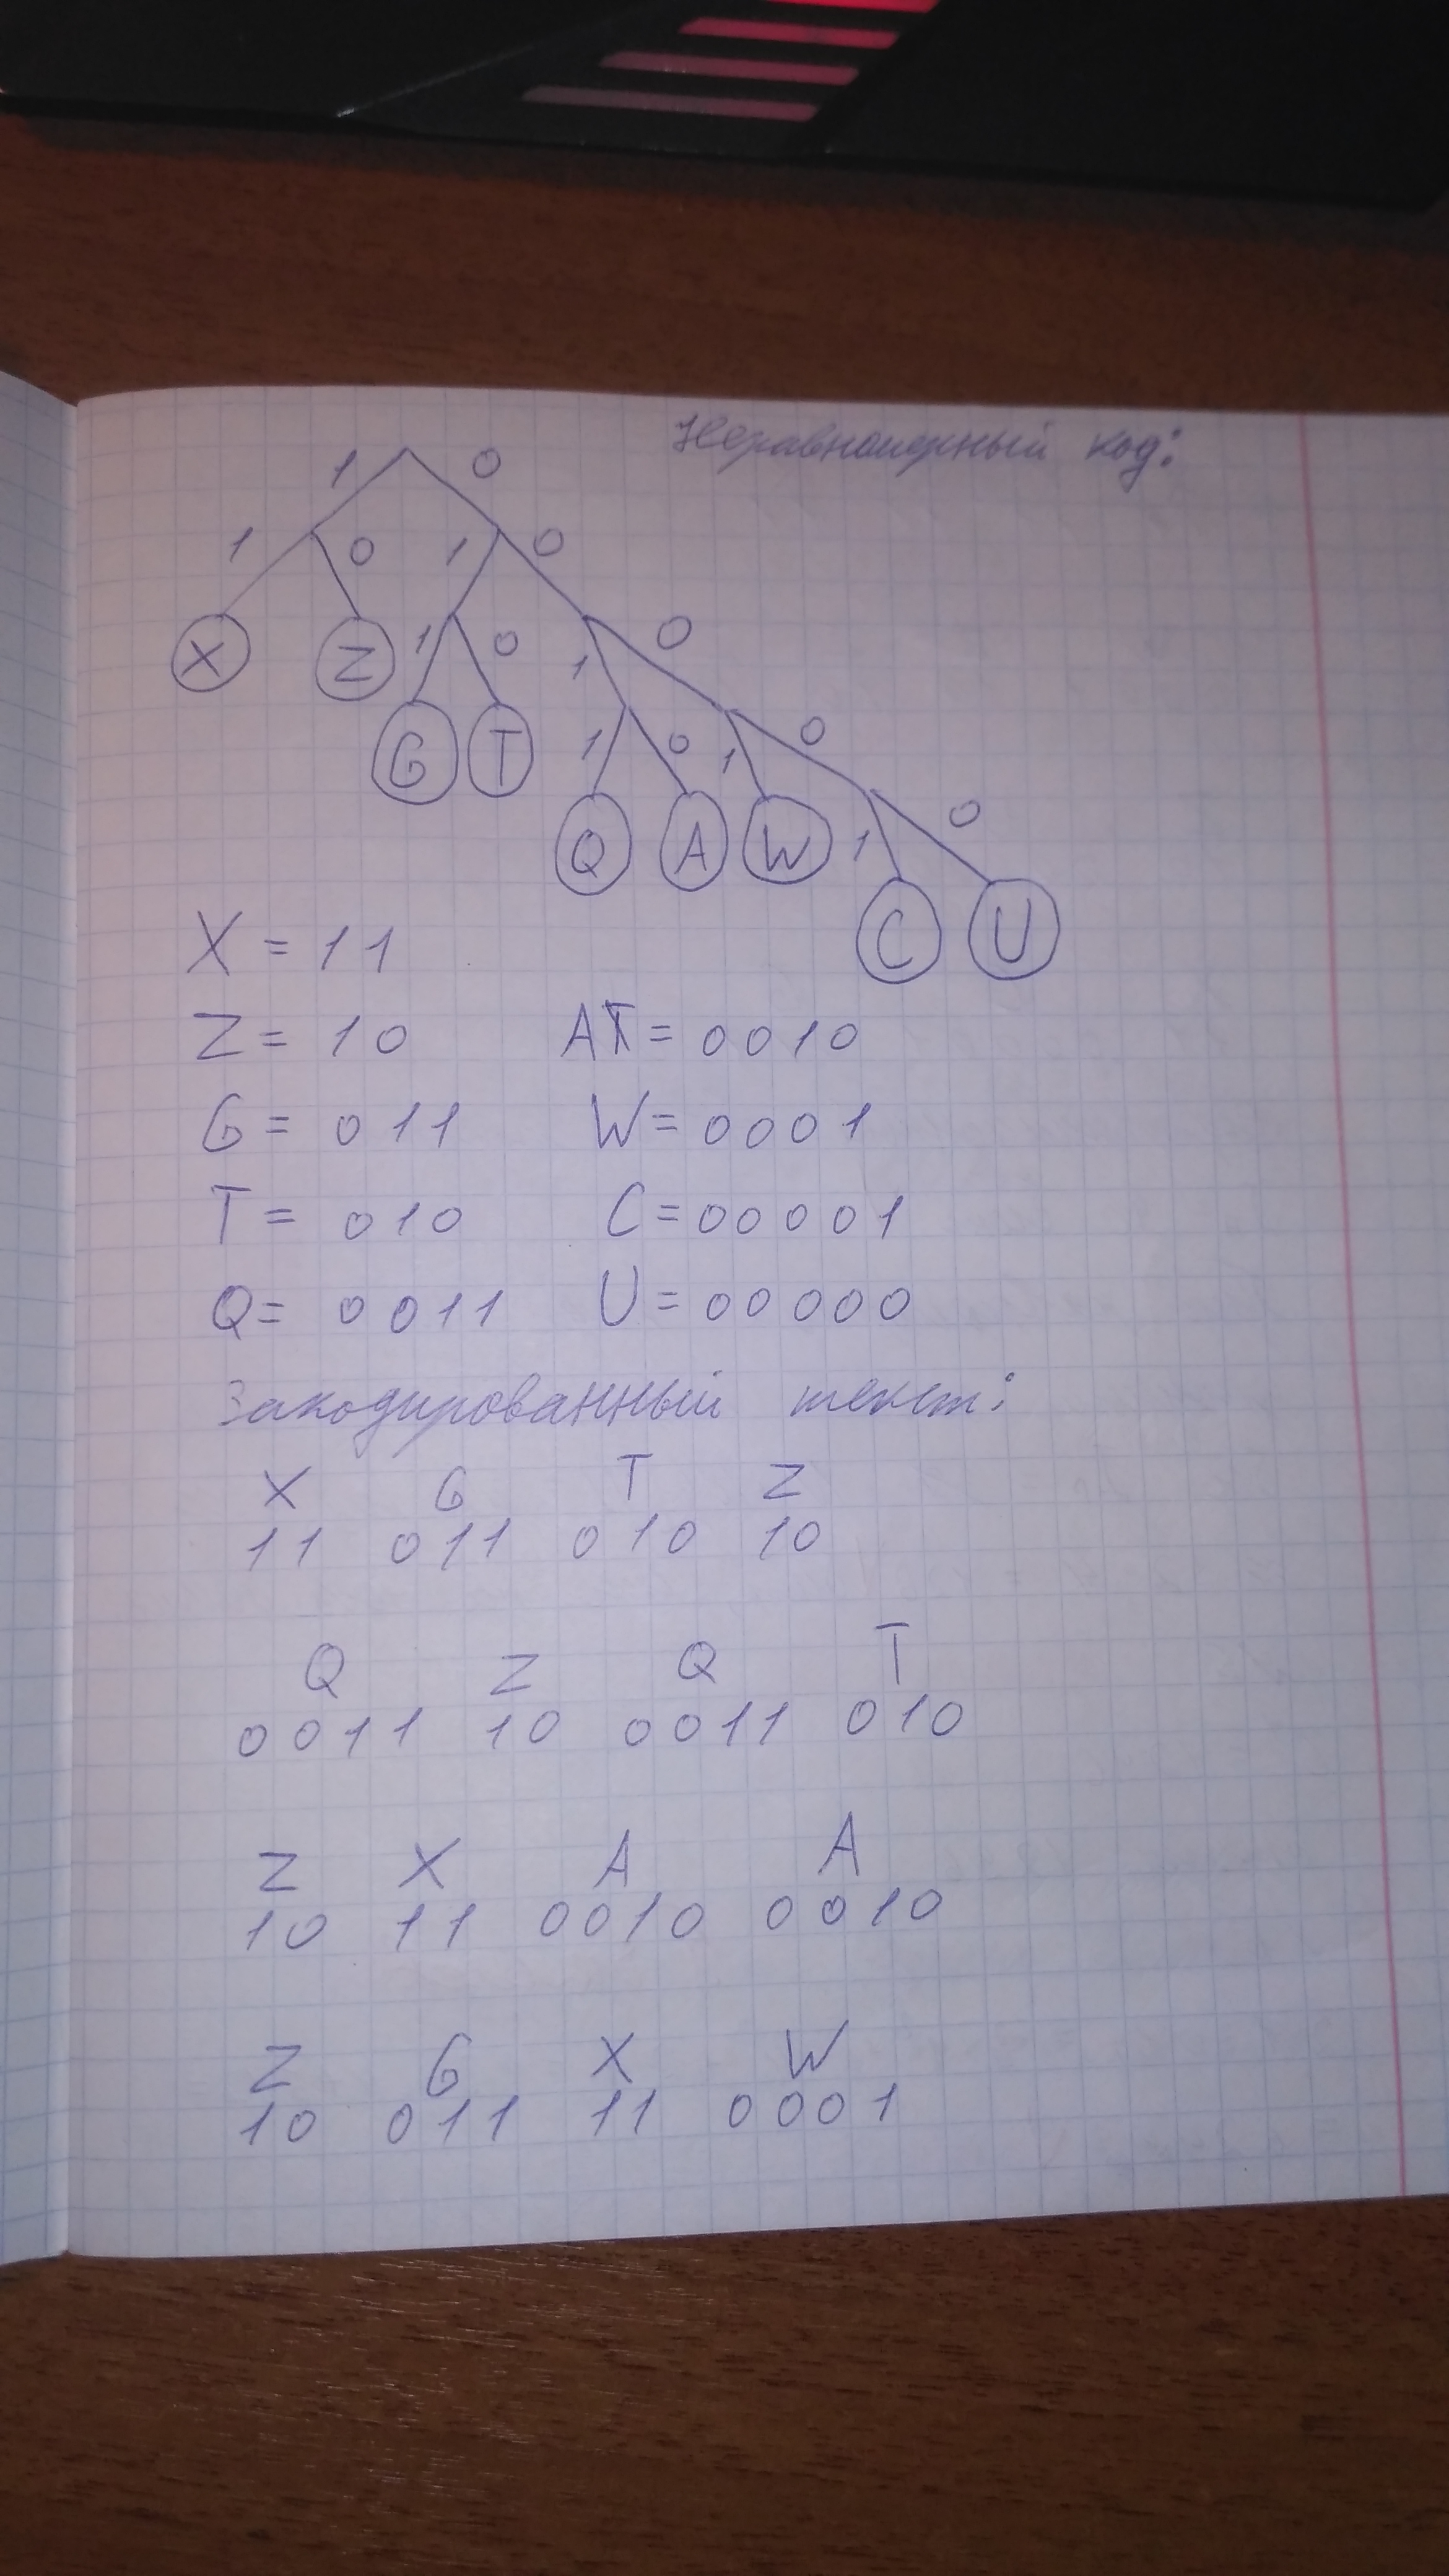 Неравномерный код:
1 0
1 0 1 0
X Z 1 0 1 0
G T 1 0 1 0
Q A W 1 0
C U
X = 11
Z = 10 A = 0010
G = 011 W = 0001
T = 010 C = 00001
Q = 0011 U = 00000
Закодированный текст:
X G T Z
11 011 010 10
Q Z Q T
0011 10 0011 010
Z X A A
10 11 0010 0010
Z G X W
10 011 11 0001